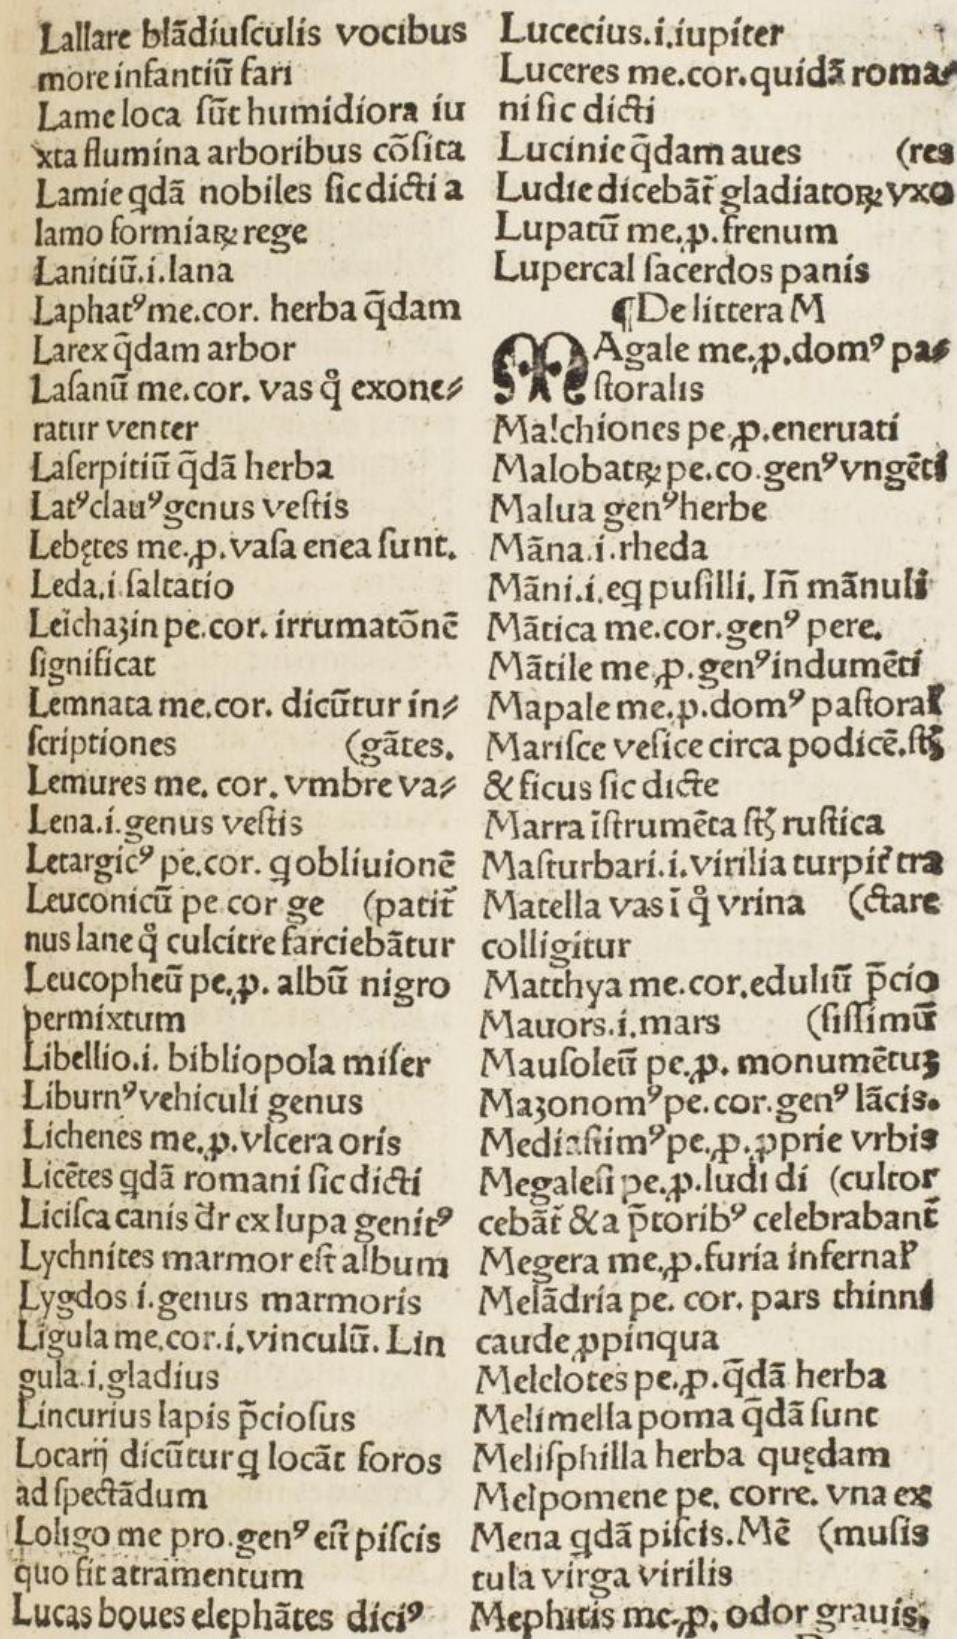 Lallare blādiuſculis vocibus
more infantiū fari
Lame loca ſūt humidiora iu
xta flumina arboribus cōſita
Lamie qdā nobiles ſic dicti a
lamo formiaꝝ rege
Lanitiū.i.lana
Laphatꝰ me.cor. herba q̄dam
Larex q̄dam arbor
Laſanū me.cor. vas q̊ exone⸗
ratur venter
Laſerpitiū q̄dā herba
Latꝰ clauꝰ genus veſtis
Lebętes me.ꝓ.vaſa enea ſunt.
Leda.i.ſaltatio
Leichaʒin pe.cor. irrumatōnē
ſignificat
Lemnata me.cor. dicūtur in⸗
ſcriptiones (gātes.
Lemures me. cor. vmbre va⸗
Lena.i.genus veſtis
Letargicꝰ pe.cor. q obliuionē
Leuconicū pe cor ge (patit̄
nus lane q̊ culcitre farciebātur
Leucopheū pe.ꝓ. albū nigro
permixtum
Libellio.i. bibliopola miſer
Liburnꝰ vehiculi genus
Lichenes me.ꝓ.vlcera oris
Licētes qdā romani ſic dicti
Liciſca canis d̄r ex lupa genitꝰ
Lychnites marmor eſt album
Lygdos i.genus marmoris
Ligula me.cor.i.vinculū. Lin
gula.i.gladius
Lincurius lapis p̄cioſus
Locarij dicūtur q locāt foros
ad ſpectādum
Loligo me pro.genꝰ eſt piſcis
quo fit atramentum
Lucas boues elephātes diciꝰ
Lucecius.i.iupiter
Luceres me.cor.quidā roma⸗
ni ſic dicti
Lucinie q̄dam aues (res
Ludie dicebāt̄ gladiatoꝝ vxo
Lupatū me.ꝓ.frenum
Lupercal ſacerdos panis
¶De littera M
MAgale me.ꝓ.domꝰ pa⸗
ſtoralis
Malchiones pe.ꝓ.eneruati
Malobatꝝ pe.co.genꝰ vngēti
Malua genꝰ herbe
Māna.i.rheda
Māni.i.eq puſilli. In̄ mānuli
Mātica me.cor.genꝰ pere.
Mātile me.ꝓ.genꝰ indumēti
Mapale me.ꝓ.domꝰ paſtoraꝉ
Mariſce veſice circa podicē.ſꝫ
& ficus ſic dicte
Marra īſtrumēta ſꝫ ruſtica
Maſturbari.i.virilia turpit̄ tra
Matella vas ī q̊ vrina (ctare
colligitur
Matthya me.cor.eduliū p̄cio
Mauors.i.mars (ſiſſimū
Mauſoleū pe.ꝓ. monumētuʒ
Maʒonomꝰ pe.cor.genꝰ lācis.
Mediaſtimꝰ pe.ꝓ.ꝓprie vrbis
Megaleſi pe.ꝓ.ludi di (cultor
cebāt̄ & a p̄toribꝰ celebrabant̄
Megera me.ꝓ.furia infernaꝉ
Melādria pe. cor. pars thinni
caude ꝓpinqua
Melelotes pe.ꝓ.q̄dā herba
Melimella poma q̄dā ſunt
Meliſphilla herba quędam
Melpomene pe. corre. vna ex
Mena qdā piſcis.Mē (muſis
tula virga virilis
Mephitis me.ꝓ. odor grauis.